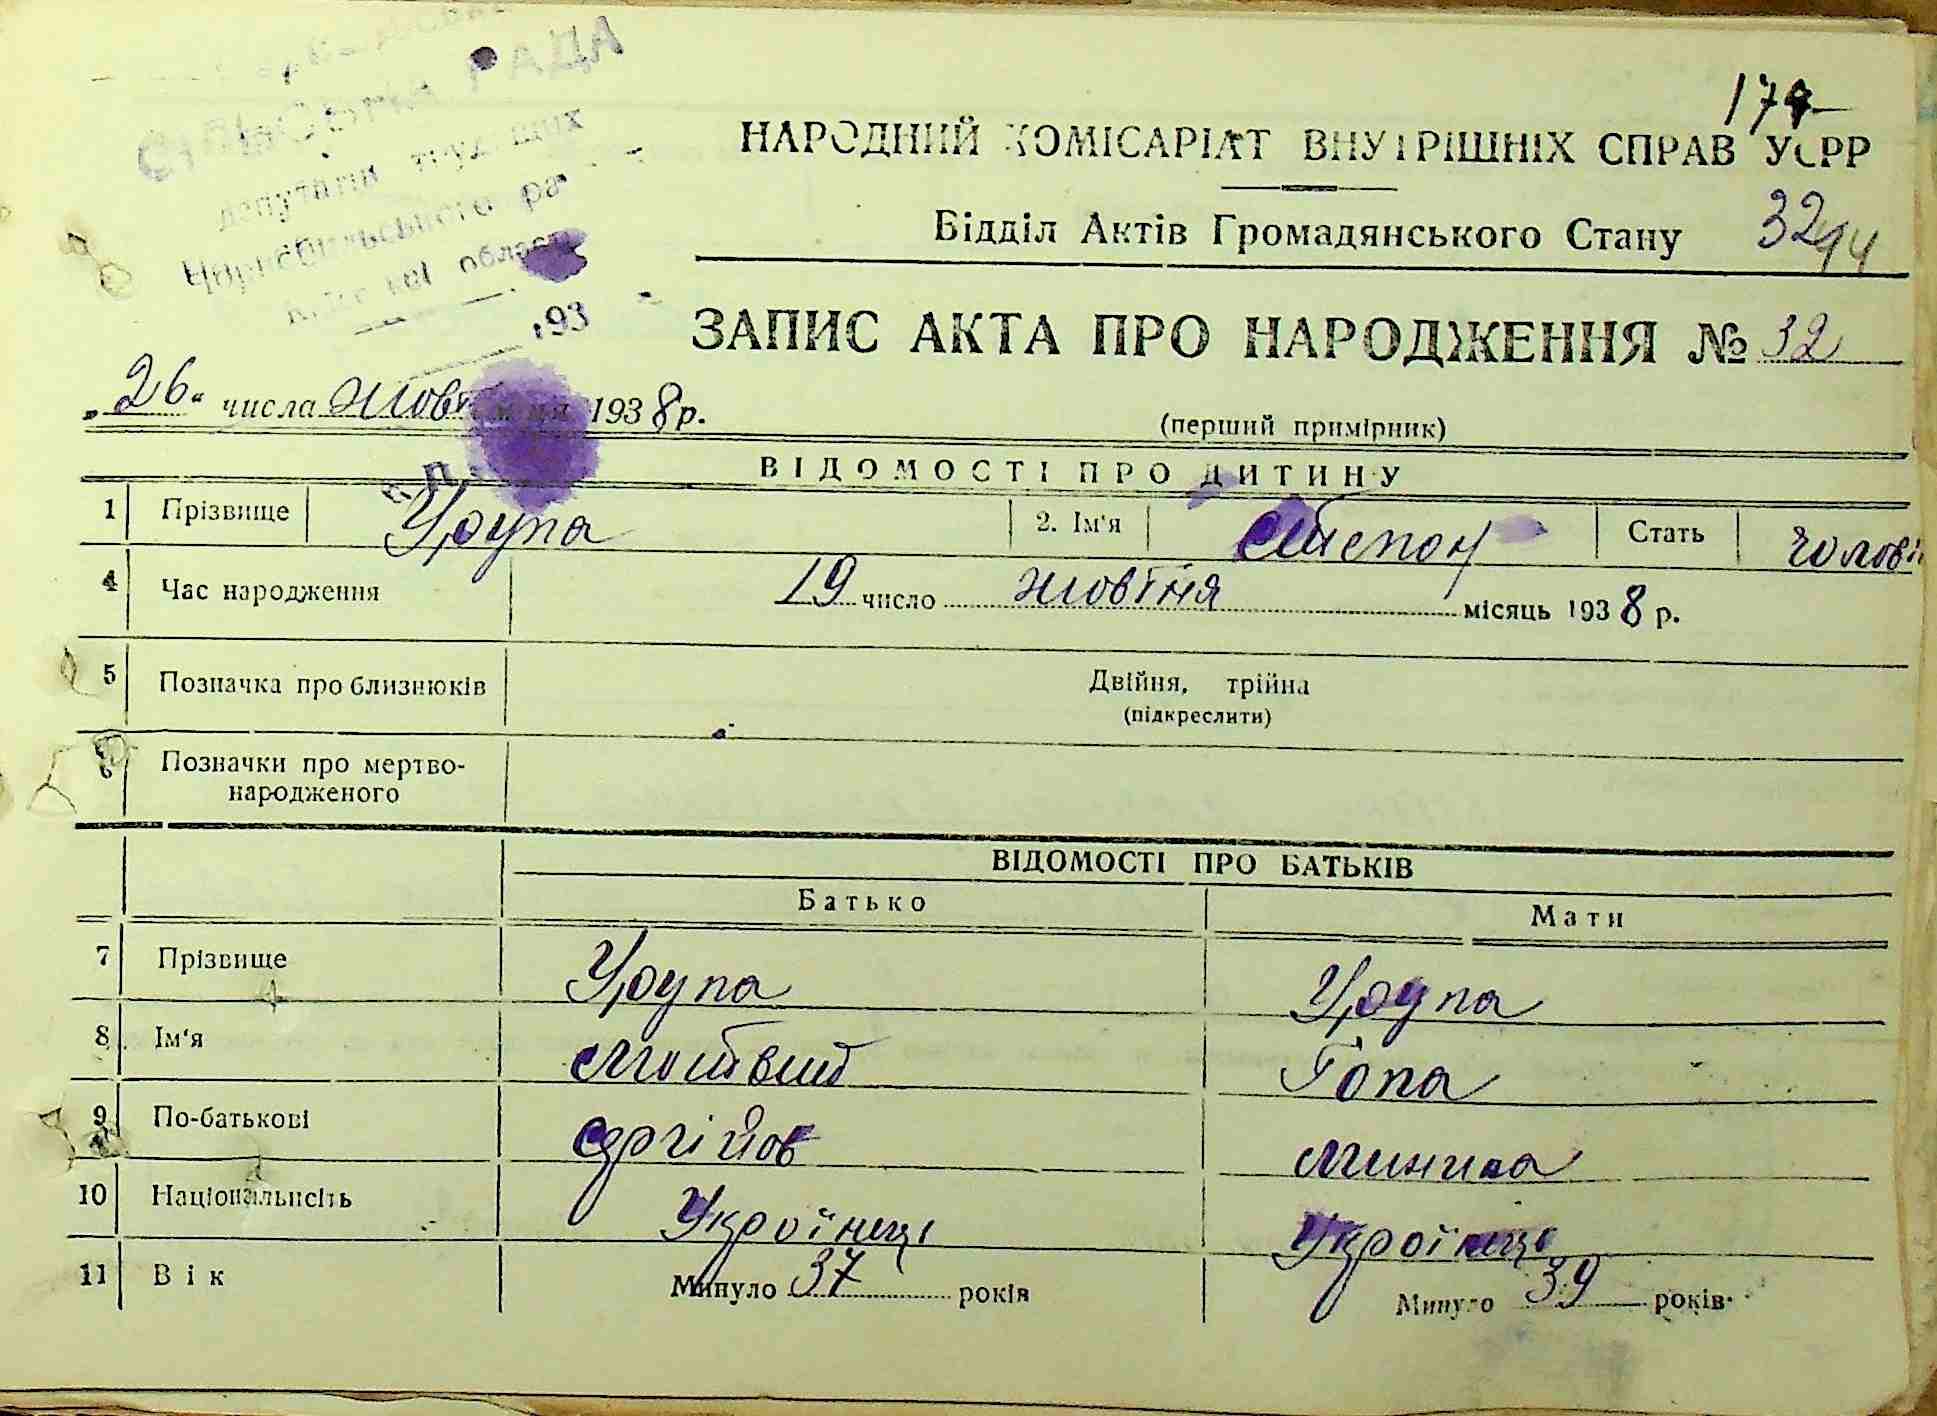 СІЛЬСЬКА РАДА
депутатів трудящих
Чорнобильського ра
області
193
174
НАРОДНИЙ КОМІСАРІАТ ВНУТРІШНІХ СПРАВ УСРР
Відділ Актів Громадянського Стану 3244
ЗАПИС АКТА ПРО НАРОДЖЕННЯ № 32
„26“ числа жовтня 1938 р.
(перший примірник)
ВІДОМОСТІ ПРО ДИТИНУ
1 Прізвище Урупа 2. Ім'я Степан Стать чолові
4 Час народження 19 число жовтня місяць 1938 р.
5 Позначка про близнюків Двійня, трійна
(підкреслити)
6 Позначки про мертво-
народженого
ВІДОМОСТІ ПРО БАТЬКІВ
Батько Мати
7 Прізвище Урупа Урупа
8 Ім'я Матвий Гапа
9 По-батькові Сргійов Минина
10 Національність Українці Українці
11 Вік Минуло 37 років Минуло 39 років